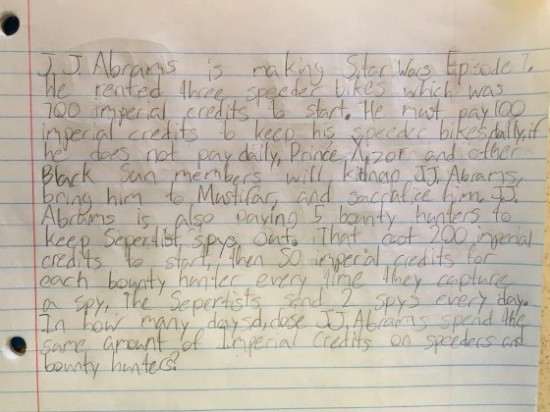 J.J. Abrams is making Star Wars Episode 7.
He rented three speeder bikes which was
700 imperial credits to start. He must pay 100
imperial credits to keep his speeder bikes daily, if
he does not pay daily, Prince Xizor and other
Black Sun members will kidnap JJ. Abrams,
bring him to Mustifar, and sacrafice him. JJ.
Abrams is also paying 5 bounty hunters to
keep Sepertist spys out. That cost 200 imperial
credits to start, then 50 imperial credits for
each bounty hunter every time they capture
a spy. The Sepertists send 2 spys every day.
In how many days dose JJ. Abrams spend the
same amount of Imperial Credits on speeders and
bounty hunters?